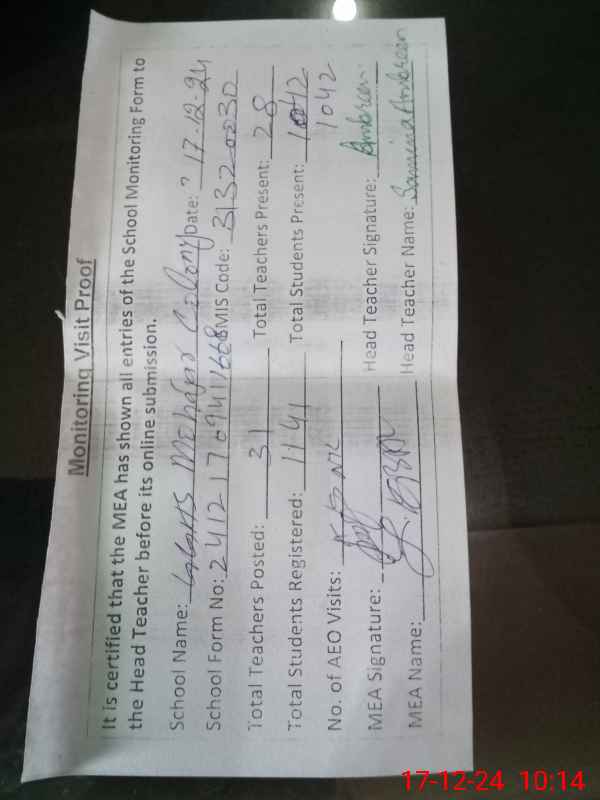 Monitoring Visit Proof
It is certified that the MEA has shown all entries of the School Monitoring Form to
the Head Teacher before its online submission.
School Name: Mohajar Colony Date: 17-12-24
School Form No: 24121709411668 EMIS Code: 31320030
Total Teachers Posted: 31 Total Teachers Present: 28
Total Students Registered: 1141 Total Students Present: 1042
1042
No. of AEO Visits:
MEA Signature: Head Teacher Signature: Ambreen
MEA Name: Head Teacher Name: Samina Ambreen
17-12-24 10:14